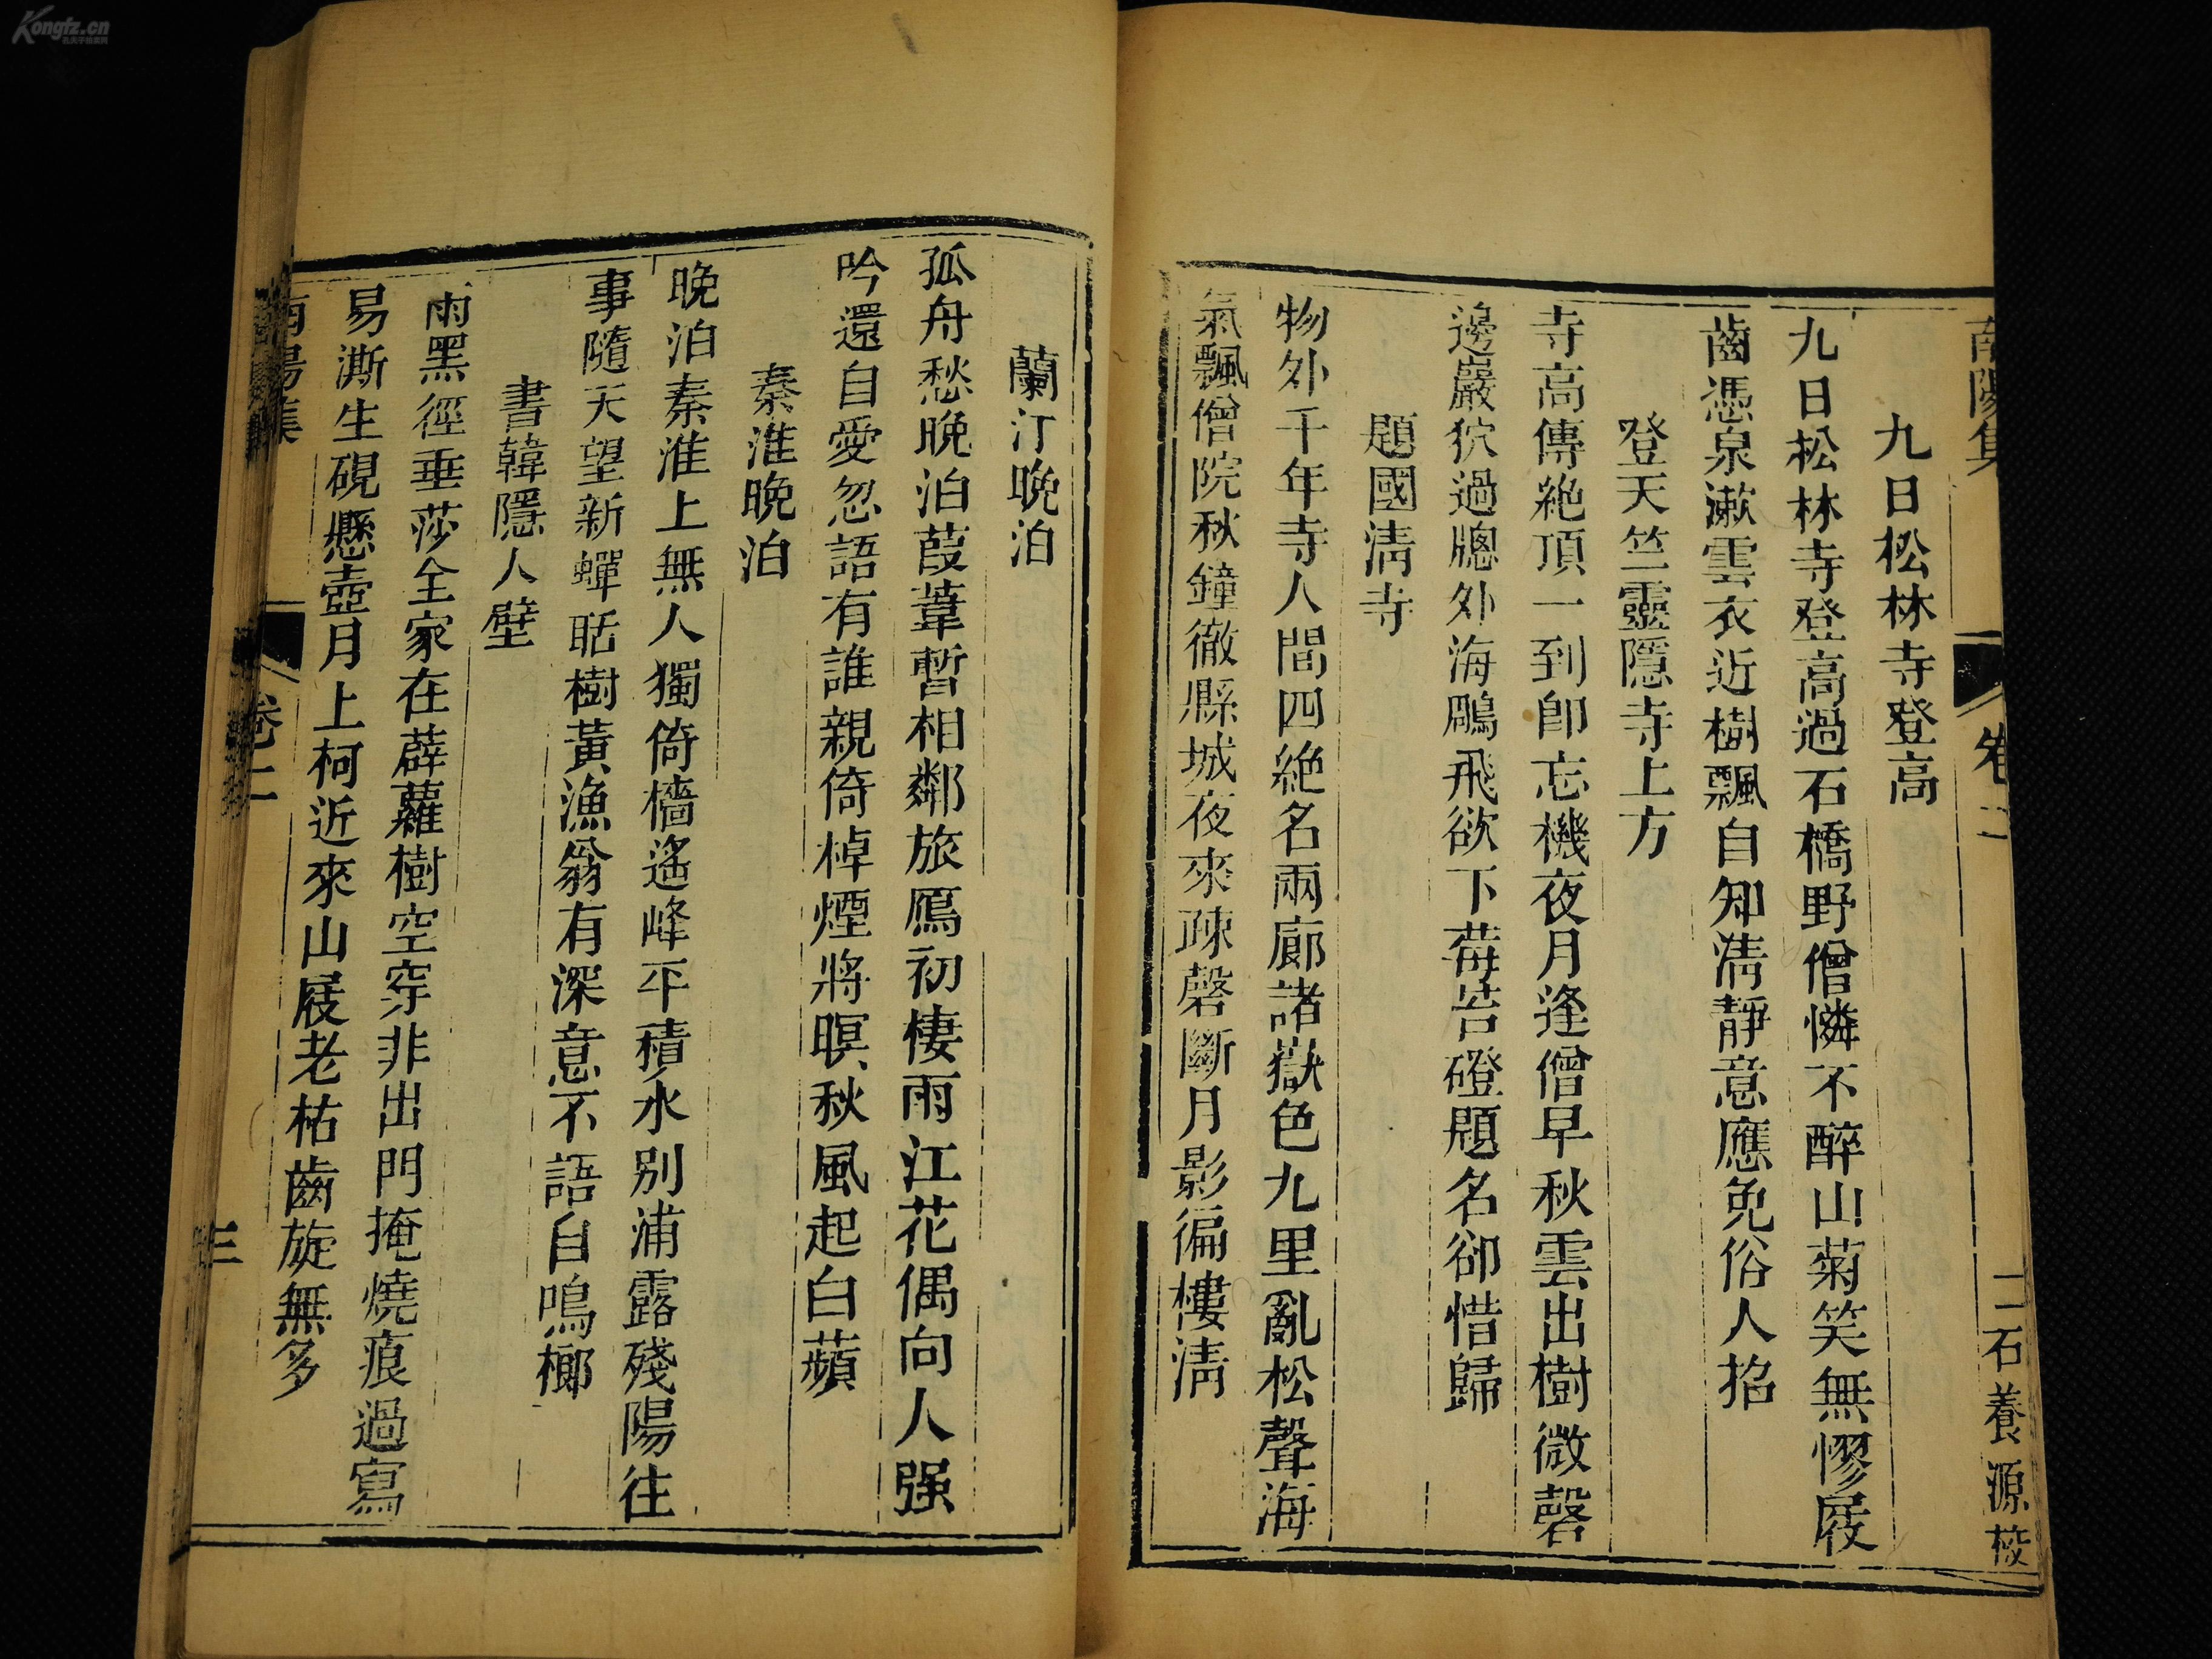 Kongfz.cn
南陽集
卷二
二
石養源校
九日松林寺登高
九日松林寺登高過石橋野僧憐不醉山菊笑無憀屐
齒憑泉漱雲衣近樹飄自知清靜意應免俗人招
登天竺靈隱寺上方
寺高傳絶頂一到即忘機夜月逢僧早秋雲出樹微磬
邊巖狖過牕外海鵰飛欲下莓苔磴題名卻惜歸
題國清寺
物外千年寺人間四絶名兩廊諸嶽色九里亂松聲海
氣飄僧院秋鐘徹縣城夜來疎磬斷月影徧樓清
蘭汀晚泊
孤舟愁晚泊葭葦暫相鄰旅鴈初棲雨江花偶向人强
吟還自愛忽語有誰親倚棹煙將暝秋風起白蘋
秦淮晚泊
晚泊秦淮上無人獨倚檣遙峰平積水別浦露殘陽往
事隨天望新蟬聒樹黃漁翁有深意不語自鳴榔
書韓隱人壁
雨黑徑垂莎全家在薜蘿樹空穿非出門掩燒痕過寫
易澌生硯懸壺月上柯近來山屐老枯齒旋無多
南陽集
卷二
三